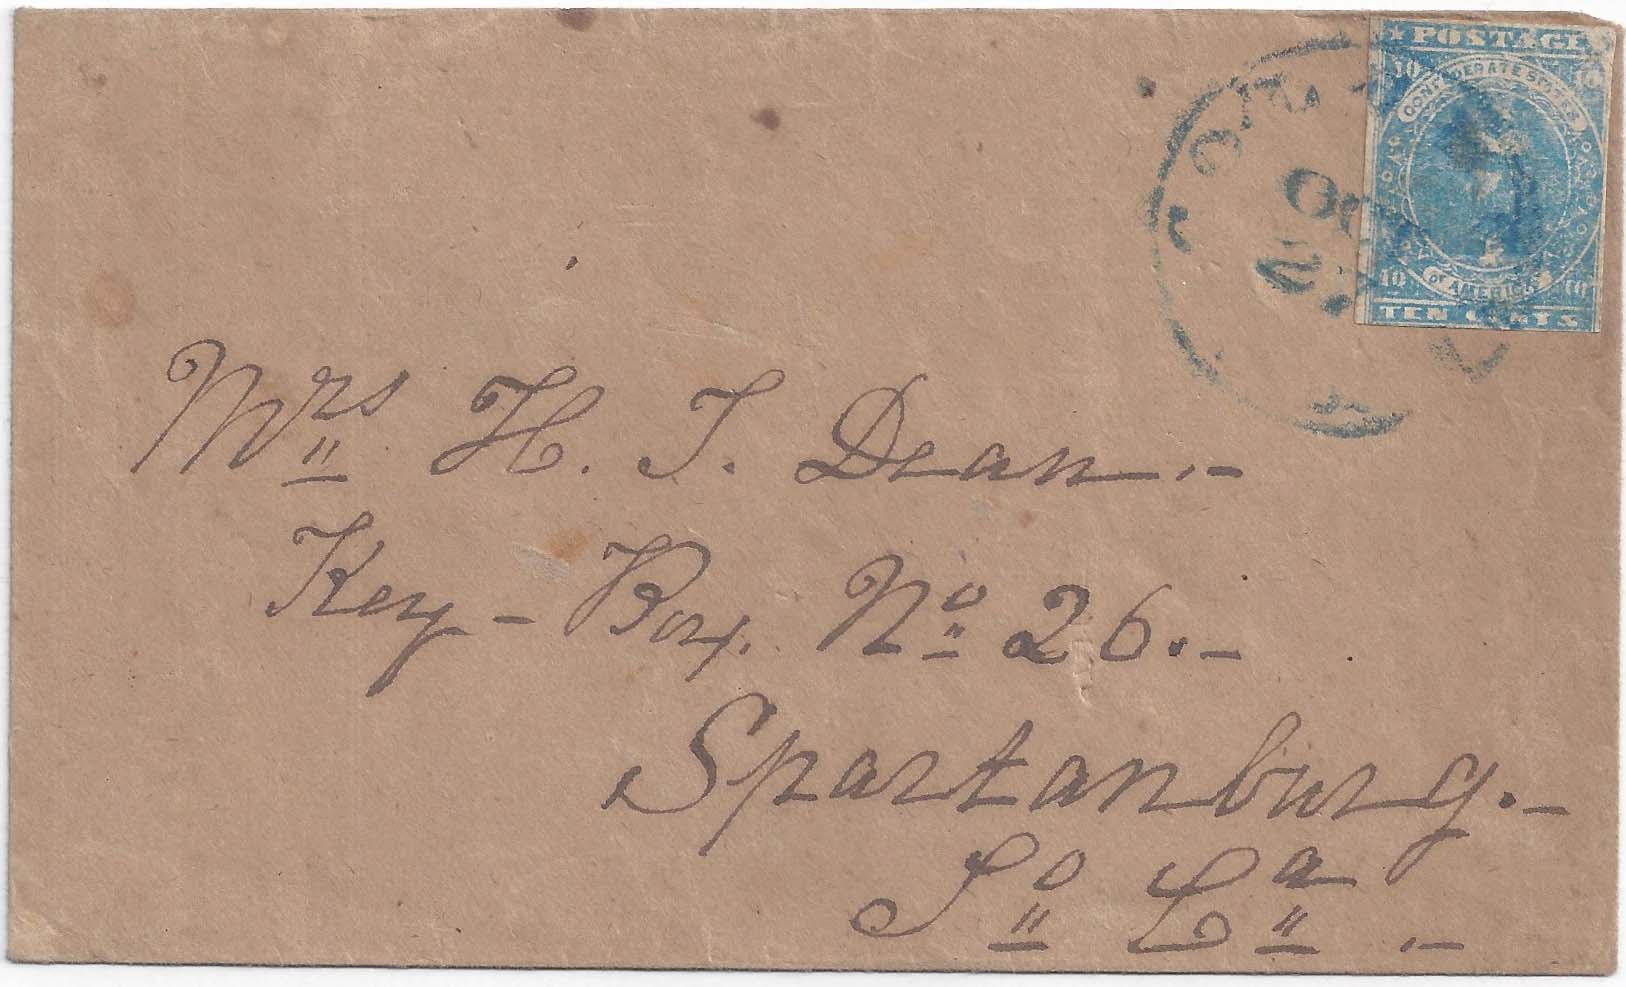 POSTAGE
10 10
CONFEDERATE STATES
OF AMERICA
10 10
TEN CENTS
OCT
Mrs H. J. Dean.-
Key - Box. No 26.-
Spartanburg.-
So Ca.-